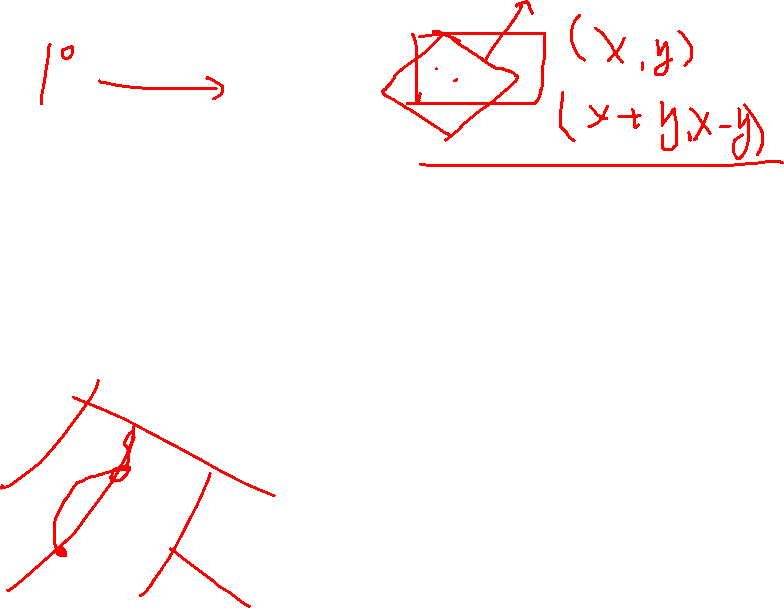 1°
(x,y)
(x+y,x-y)